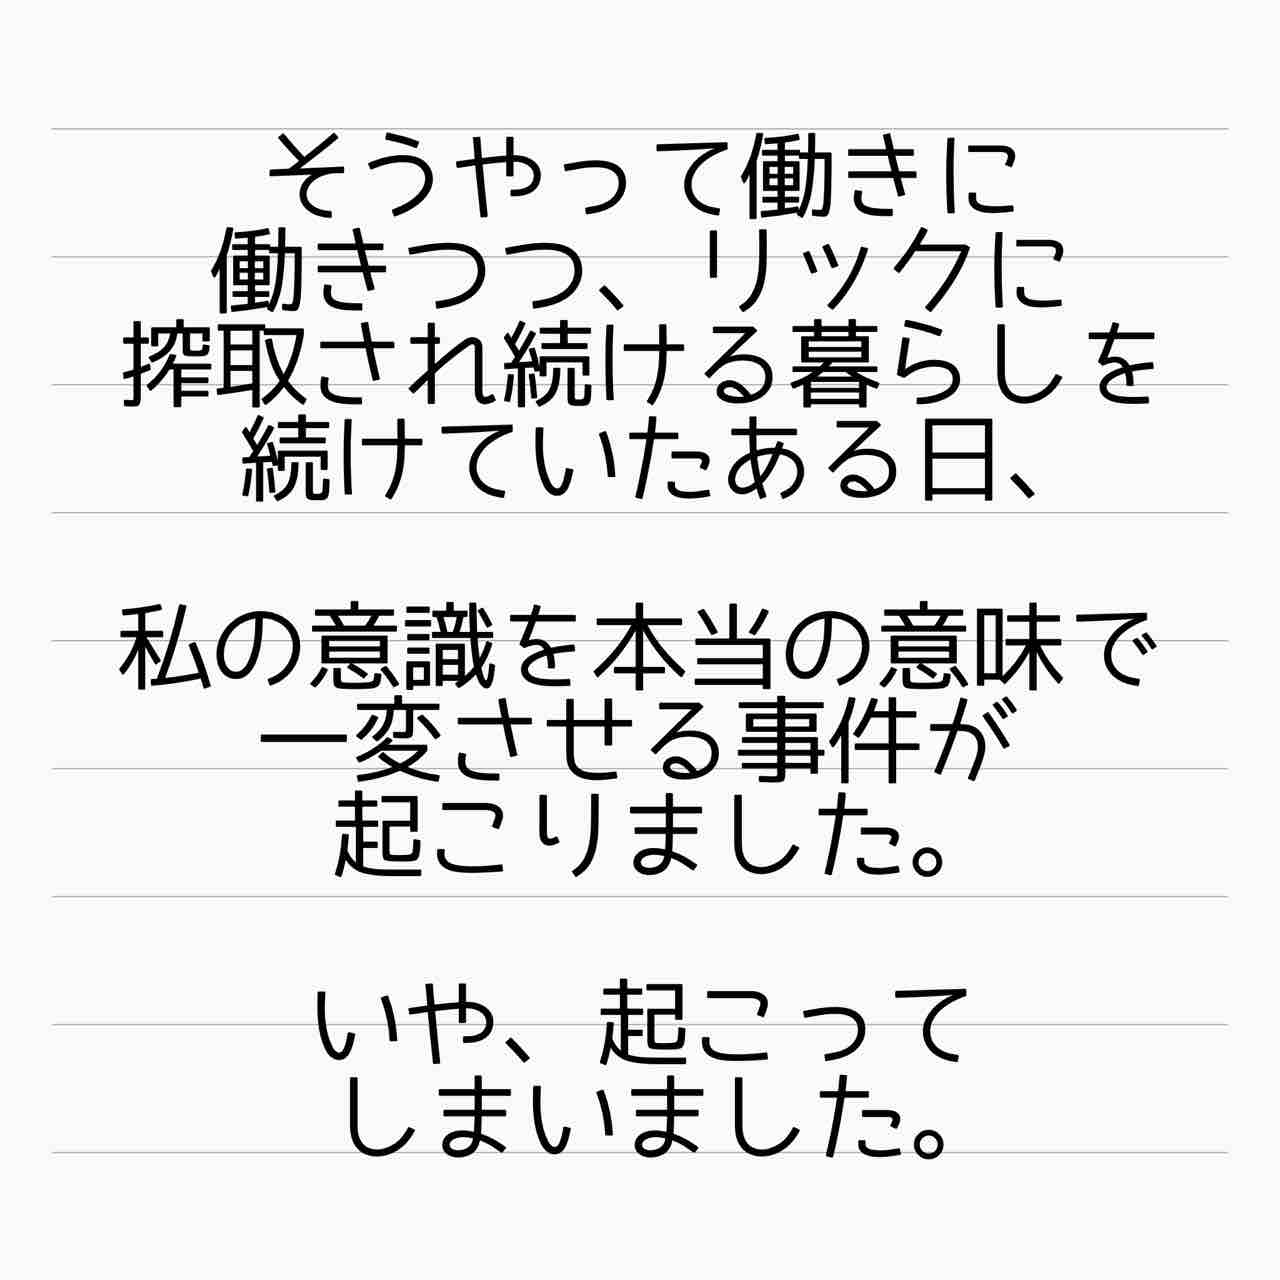 そうやって働きに
働きつつ、リックに
搾取され続ける暮らしを
続けていたある日、
私の意識を本当の意味で
一変させる事件が
起こりました。
いや、起こって
しまいました。